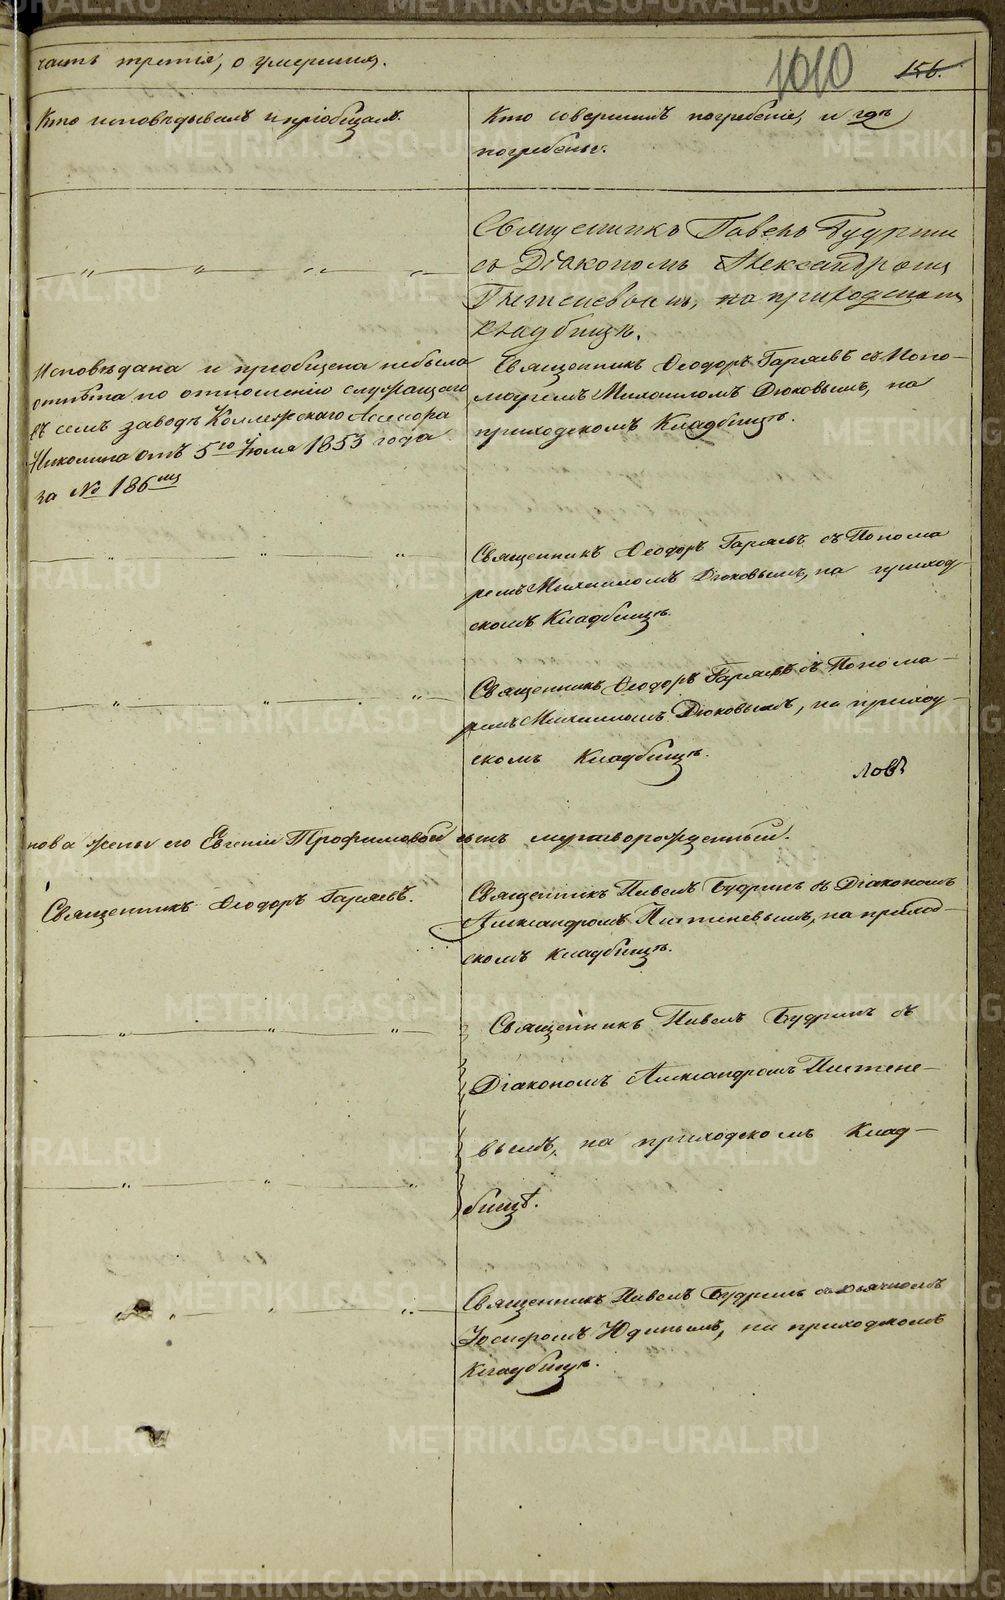 часть третія, о умершихъ.
1010
156.
Кто исповѣдывалъ и пріобщалъ.
Кто совершилъ погребеніе, и гдѣ
погребены.
Священникъ Павелъ Будринъ
съ Діакономъ Александромъ
на приходскомъ
кладбищѣ.
Исповѣдана и пріобщена небыла
по отношенію служащаго
въ семъ заводѣ Коллежскаго Ассесора
Николина отъ 5го Іюля 1853 года
за № 186мъ
Священникъ Ѳеодоръ Гаряевъ съ Поно-
маремъ Михаиломъ Дюковымъ, на
приходскомъ Кладбищѣ.
Священникъ Ѳеодоръ Гаряевъ съ Понома
ремъ Михаиломъ Дюковымъ, на приход-
скомъ Кладбищѣ.
Священникъ Ѳеодоръ Гаряевъ съ Понома-
ремъ Михаиломъ Дюковымъ, на приход-
скомъ Кладбищѣ.
нова жены его Евгеніи Трофимовой сынъ мертворожденный.
Священникъ Ѳеодоръ Гаряевъ.
Священникъ Павелъ Будринъ съ Діакономъ
Александромъ на приход-
скомъ кладбищѣ.
Священникъ Павелъ Будринъ съ
Діакономъ Александромъ
вымъ, на приходскомъ Клад-
бищѣ.
Священникъ Павелъ Будринъ съ дьячкомъ
Іосифомъ Юдинымъ, на приходскомъ
кладбищѣ.
METRIKI.GASO-URAL.RU